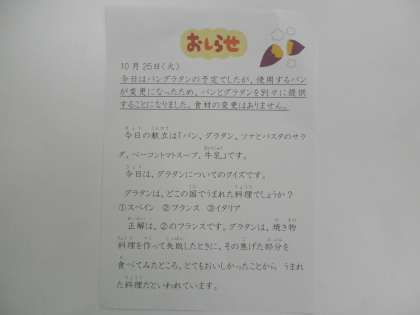 おしらせ
10月25日(火)
今日はパングラタンの予定でしたが、使用するパン
が変更になったため、パンとグラタンを別々に提供
することになりました。食材の変更はありません。
今日の献立は「パン、グラタン、ツナとパスタのサラ
ダ、ベーコントマトスープ、牛乳」です。
今日は、グラタンについてのクイズです。
グラタンは、どこの国でうまれた料理でしょうか?
①スペイン ②フランス ③イタリア
正解は、②のフランスです。グラタンは、焼き物
料理を作って失敗したときに、その焦げた部分を
食べてみたところ、とてもおいしかったことから うまれ
た料理だといわれています。